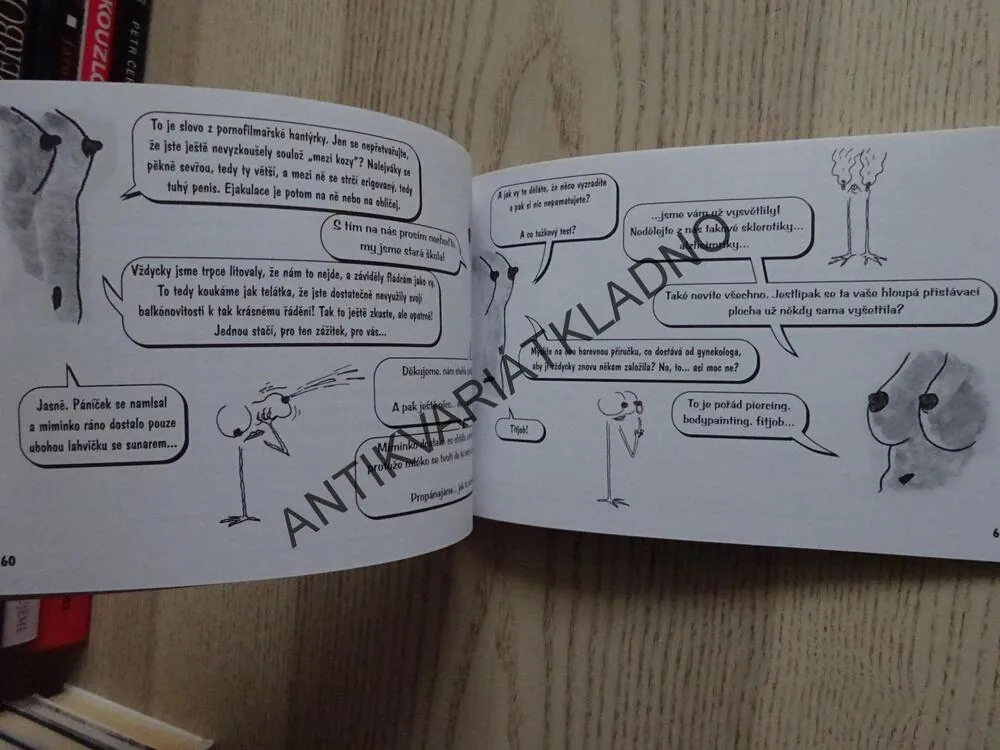 KOUZLO
PETR
To je slovo z pornofilmařské hantýrky. Jen se nepřetvařujte,
že jste ještě nevyzkoušely soulož „mezi kozy“? Nalejváky se
pěkně sevřou, tedy ty větší, a mezi ně se strčí erigovaný, tedy
tuhý penis. Ejakulace je potom na ně nebo na obličej.
S tím na nás prosím
my jsme stará škola!
Vždycky jsme trpce litovaly, že nám to nejde, a záviděly fládrám jako vy.
To tedy koukáme jak telátka, že jste dostatečně nevyužily svojí
balkónovitosti k tak krásnému řádění! Tak to ještě zkuste, ale opatrně!
Jednou stačí, pro ten zážitek, pro vás...
Jasně. Páníček se namlsal
a miminko ráno dostalo pouze
ubohou lahvičku se sunarem...
Děkujeme, nám
A pak ještě
Miminko
protože mléko se tvoří do
Propánajána... jak
60
A jak vy to děláte, že něco vyzradíte
a pak si nic nepamatujete?
A co tužkový test?
...jsme vám už vysvětlily!
Nedělejte z nás takové sklerotiky...
alzheimriky...
Také nevíte všechno. Jestlipak se ta vaše hloupá přistávací
plocha už někdy sama vyšetřila?
Myslíte na tu barevnou příručku, co dostává od gynekologa,
aby ji vždycky znovu někam založila? No, to... asi moc ne?
Titjob!
To je pořád piercing,
bodypainting, fitjob...
6
ANTIKVARIÁTKLADNO